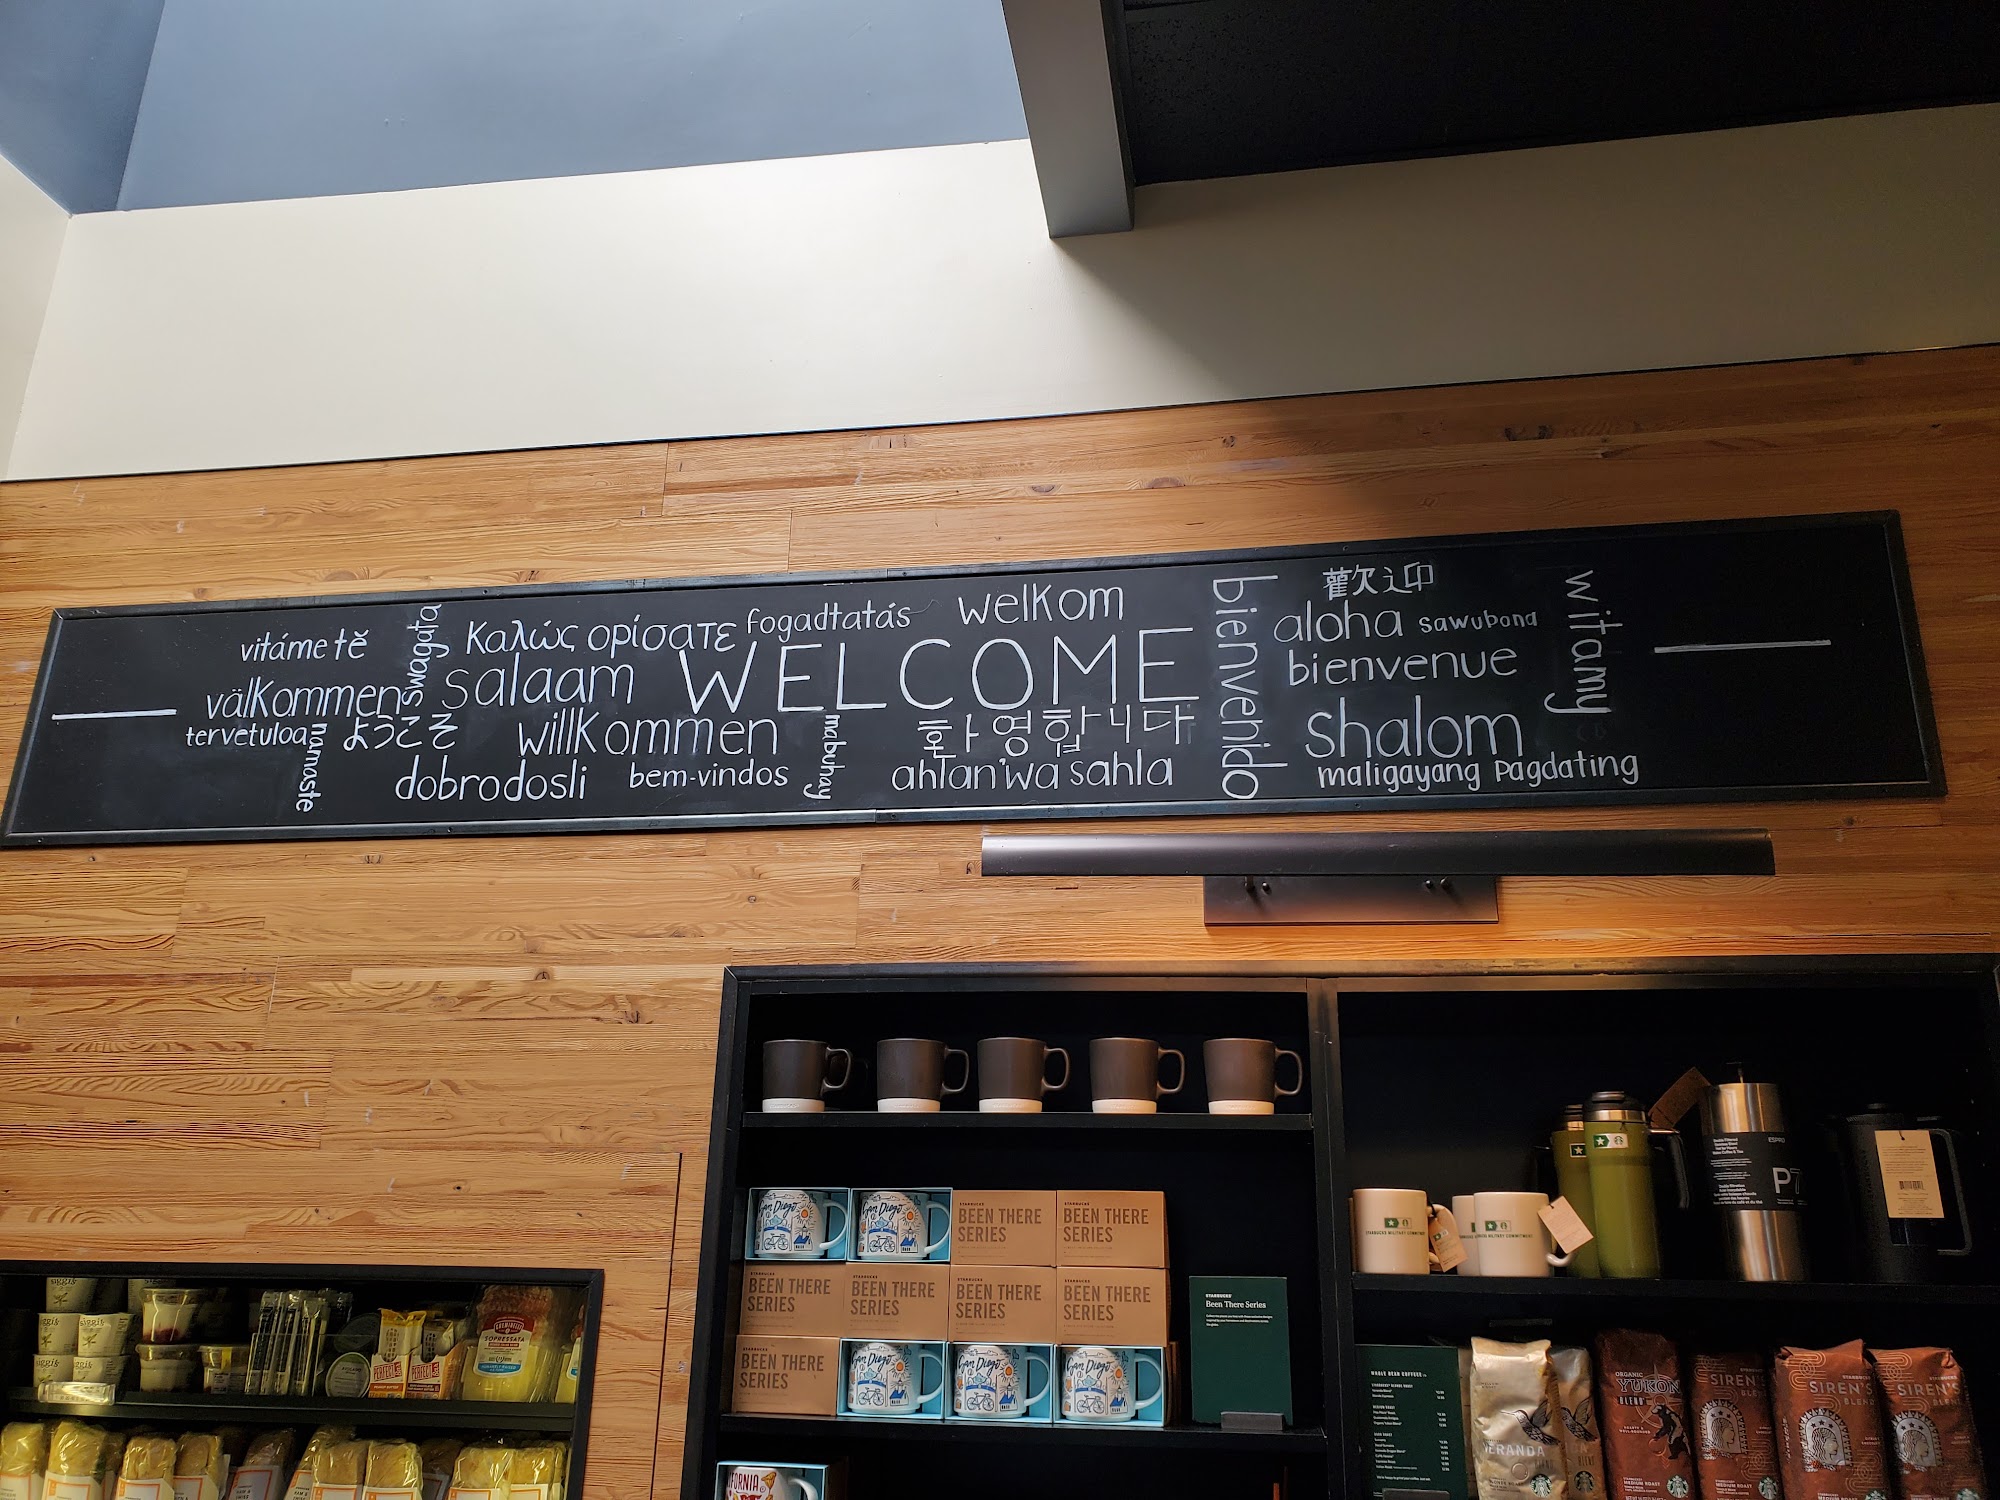 vitáme tě
swagata
Καλώς ορίσατε
fogadtatás
welkom
bienvenido
歡迎
aloha
sawubona
witamy
välkommen
salaam
WELCOME
bienvenue
tervetuloa
namaste
ようこそ
willkommen
mabuhay
환영합니다
shalom
dobrodosli
bem-vindos
ahlan'wa sahla
maligayang pagdating
San Diego
San Diego
BEEN THERE
SERIES
BEEN THERE
SERIES
BEEN THERE
SERIES
BEEN THERE
SERIES
BEEN THERE
SERIES
BEEN THERE
SERIES
BEEN THERE
SERIES
San Diego
San Diego
San Diego
STARBUCKS
Been There Series
ESPRO
P7
siggi's
siggi's
siggi's
SOPRESSATA
PERFECT
WHOLE BEAN COFFEES
VERANDA
ORGANIC
YUKON
BLEND
MEDIUM ROAST
SIREN'S
BLEND
MEDIUM ROAST
SIREN'S
BLEND
MEDIUM ROAST
SIREN'S
BLEND
MEDIUM ROAST